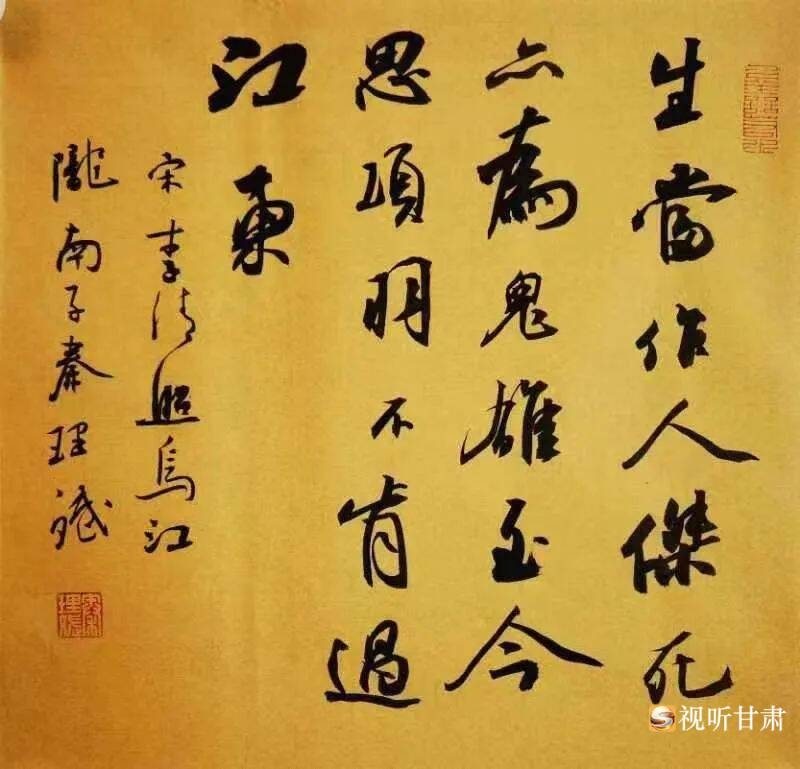 生當作人傑死
亦為鬼雄至今
思項羽不肯過
江東
宋李清照烏江
隴南子秦理斌
视听甘肃